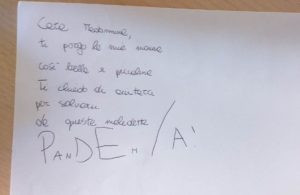 Cara Madonnina,
ti porgo le mie manine
così belle e piccoline
Ti chiedo di aiutarci
per salvarci
da questa maledetta
PANDEMIA!